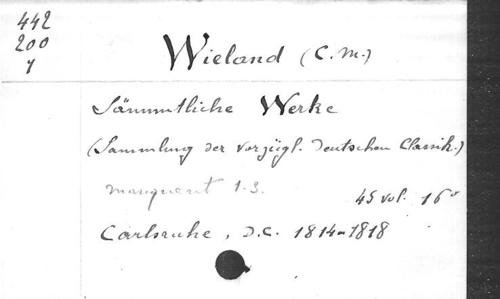 442
200
7
Wieland (C. M.)
Sämmtliche Werke
(Sammlung der vorzügl. Deutschen Classik.)
manquent 1-3.
45 vol. 16°
Carlsruhe, D.C. 1814-1818